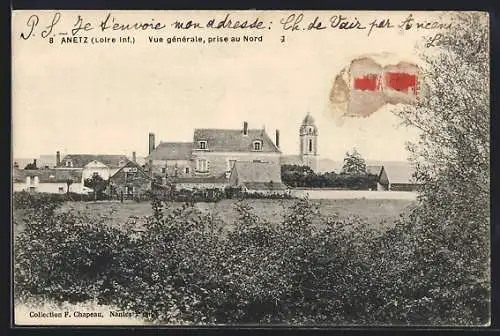 P.S. Je t'envoie mon adresse : Ch. de Vair par Ancenis
8 ANETZ (Loire Inf.) Vue générale, prise au Nord
Collection F. Chapeau, Nantes